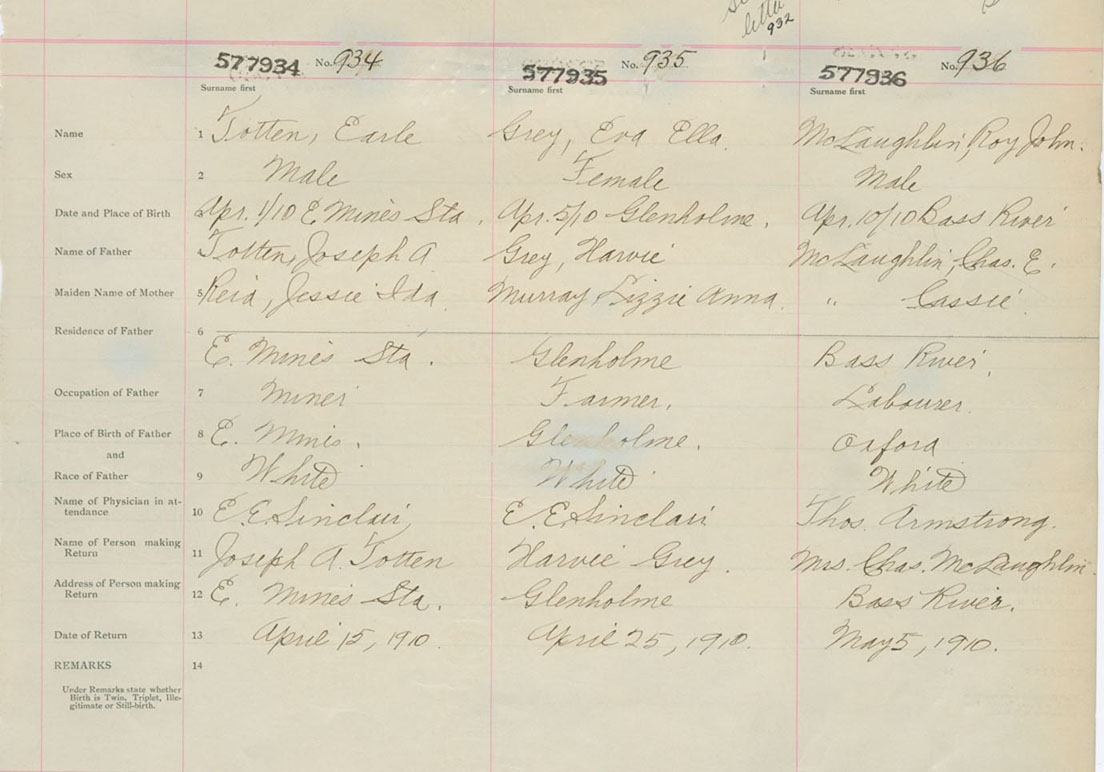 letter
932
577934 No. 934 577935 No. 935 577936 No. 936
Surname first Surname first Surname first
Name 1 Totten, Earle Grey, Eva Ella. McLaughlin, Roy John.
Sex 2 Male Female Male
Date and Place of Birth 3 Apr. 1/10 E Mines Sta. Apr. 5/10 Glenholme. Apr. 10/10 Bass River
Name of Father 4 Totten, Joseph A Grey, Harvie McLaughlin, Chas. E.
Maiden Name of Mother 5 Reid, Jessie Ida Murray Lizzie Anna. " Cassie
Residence of Father 6
E. Mines Sta. Glenholme Bass River.
Occupation of Father 7 Miner Farmer. Labourer.
Place of Birth of Father 8 E. Mines. Glenholme. Oxford
and
Race of Father 9 White White White
Name of Physician in at-
tendance 10 E. E. Sinclair, E. E. Sinclair Thos. Armstrong.
Name of Person making
Return 11 Joseph A. Totten Harvie Grey. Mrs. Chas. McLaughlin.
Address of Person making
Return 12 E. Mines Sta. Glenholme Bass River.
Date of Return 13 April 15, 1910. April 25, 1910. May 5, 1910.
REMARKS 14
Under Remarks state whether
Birth is Twin, Triplet, Ille-
gitimate or Still-birth.